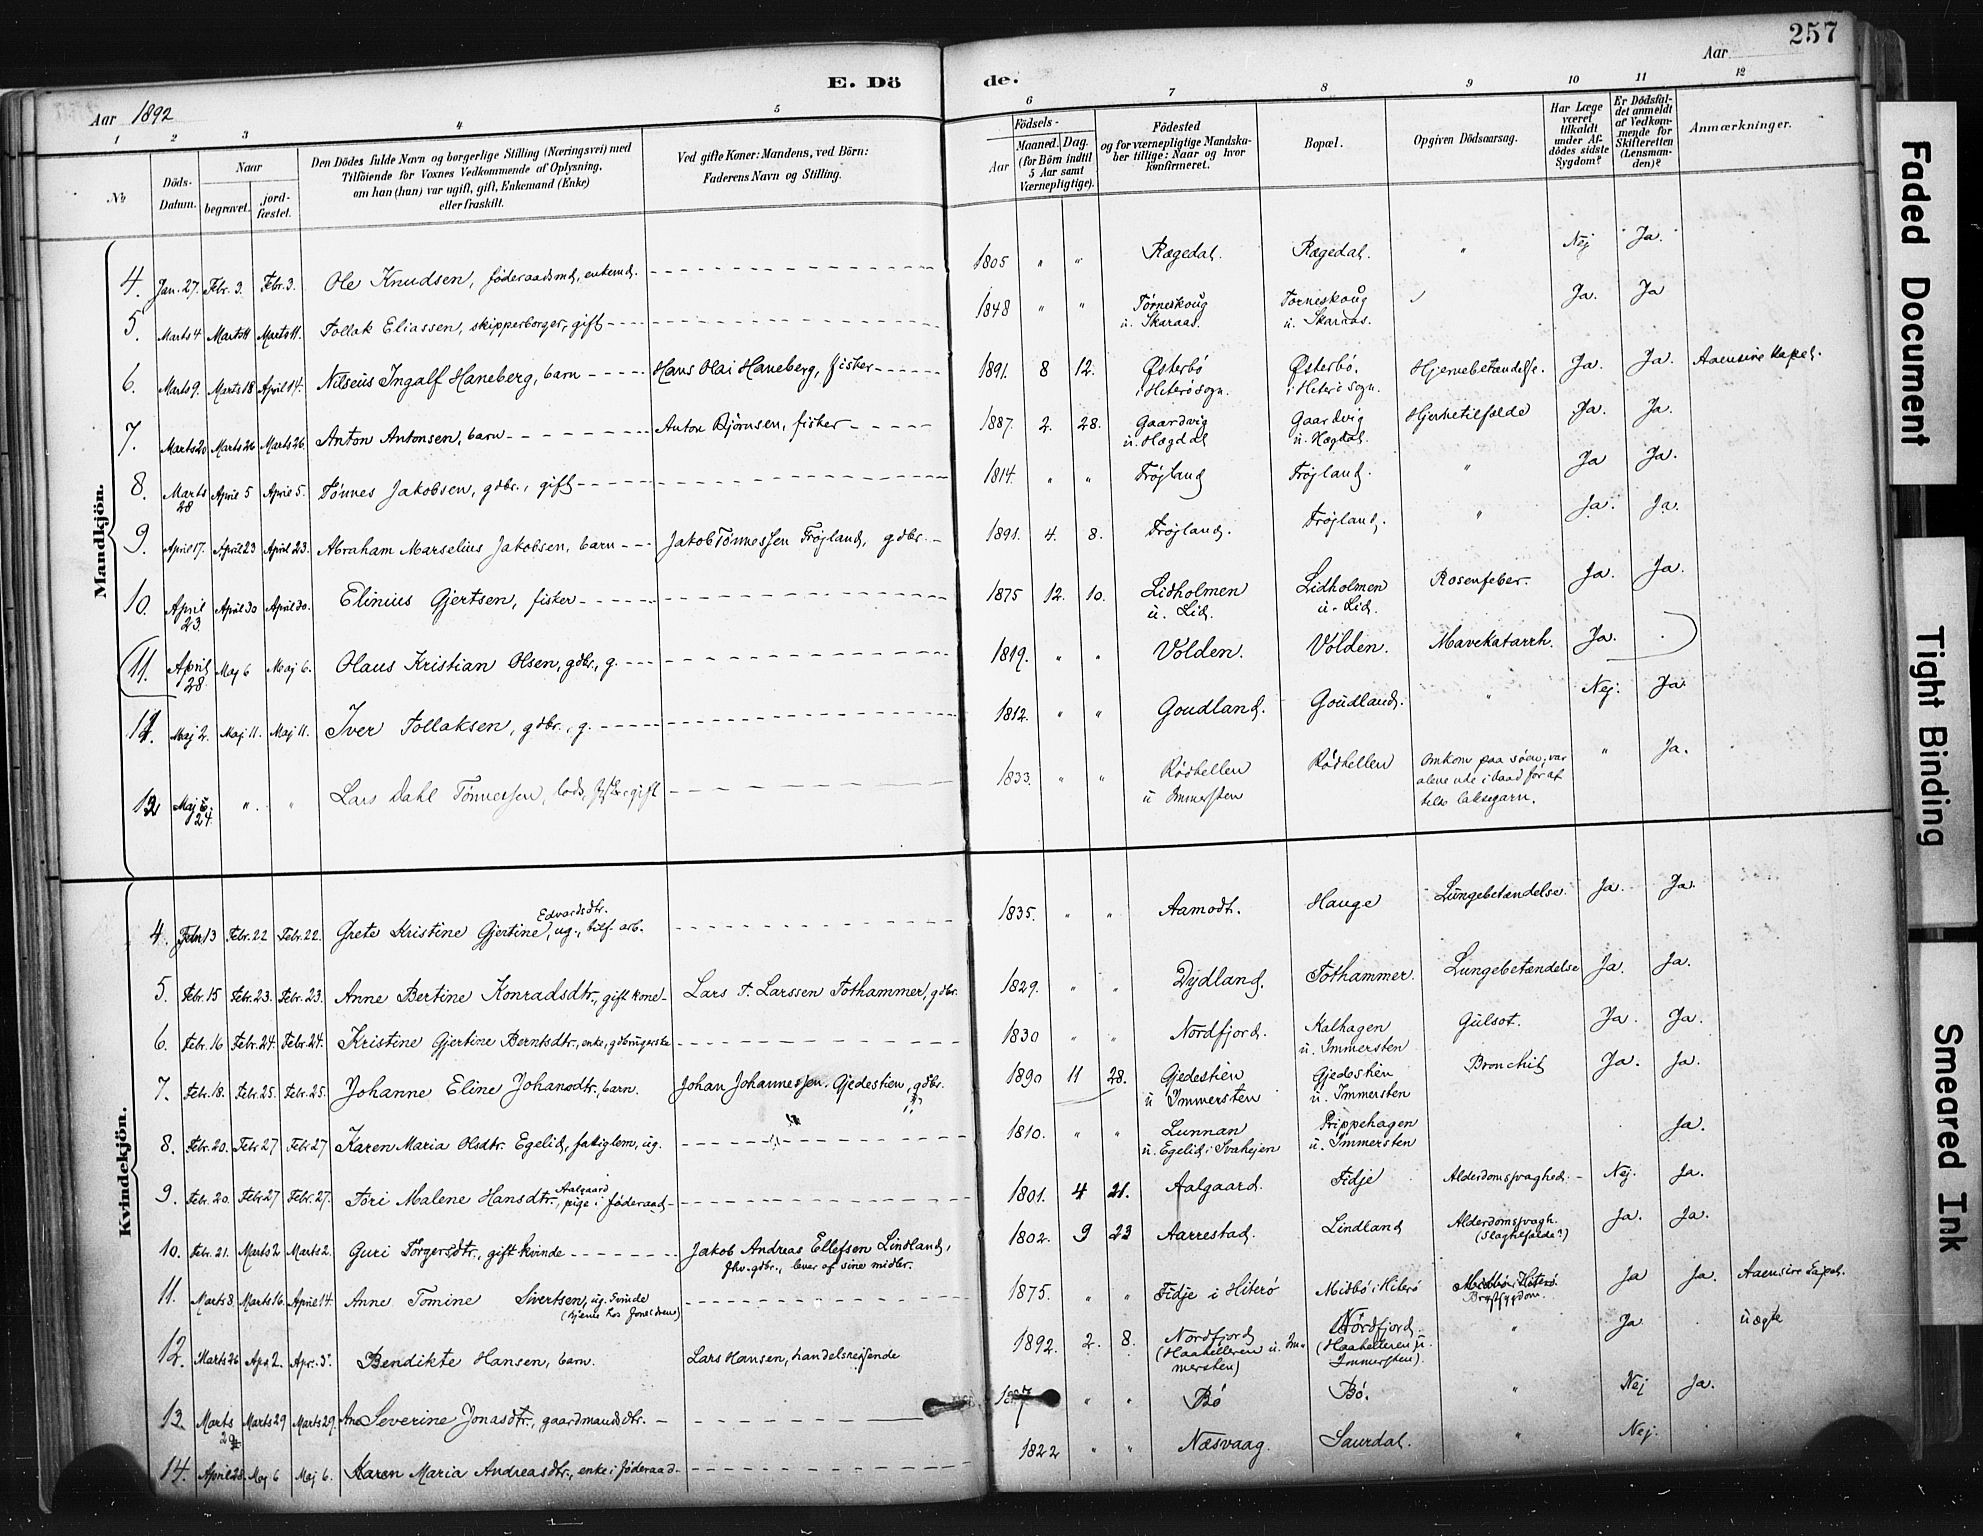 257
E. Dö de.
Aar 1892
Aar
1 2 3 4 5 6 7 8 9 10 11 12
No
Döds-Datum.
Naar
begravet.
jord-fæstet.
Den Dödes fulde Navn og borgerlige Stilling (Næringsvei) med
Tilföiende for Voxnes Vedkommende af Oplysning,
om han (hun) var ugift, gift, Enkemand (Enke)
eller fraskilt.
Ved gifte Koner: Mandens, ved Börn:
Faderens Navn og Stilling.
Födsels-
Aar
Maaned. Dag.
(for Börn indtil
5 Aar samt
Værnepligtige).
Födested
og for værnepligtige Mandska-
ber tillige: Naar og hvor
konfirmeret.
Bopæl.
Opgiven Dödsaarsag.
Har Læge
været
tilkaldt
under Af-
dödes sidste
Sygdom?
Er Dödsfal-
det anmeldt
af Vedkom-
mende for
Skifteretten
(Lensman-
den)?
Anmærkninger.
Mandkjön.
4. Jan. 27. Febr. 3. Febr. 3. Ole Knudsen, føderaadsmd, enkemd. 1805 " " Rægedal. Rægedal. " Nej Ja.
5. Marts 4 Marts 11 Marts 11. Tollak Eliassen, skipperborger, gift 1848 " " Torneskoug u. Skaraas. Torneskoug u. Skaraas. Ja. Ja
6. Marts 9. Marts 18 April 14. Nilseus Ingalf Haneberg, barn Hans Olai Haneberg, fisker 1891. 8 12. Østerbö i Hiterö sogn. Østerbö. i Hiterö sogn. Hjernebetændelse. Ja. Ja. Aaensire kapel.
7. Marts 20 Marts 26 Marts 26. Anton Antonsen, barn Anton Bjørnsen, fisker 1887. 2. 28. Gaardvig u. Hægdal Gaardvig u. Hægdal. Hjertetilfælde Ja. Ja.
8. Marts 28 April 5 April 5. Tönnes Jakobsen, gdbr., gift 1814. " " Tröjland Tröjland. " Ja Ja.
9. April 17. April 23 April 23. Abraham Marselius Jakobsen, barn Jakob Tönnessen Tröjland, gdbr. 1891. 4. 8. Tröjland. Tröjland. " Ja. Ja.
10. April 23. April 30 April 30. Elinius Gjertsen, fisker 1875 12. 10. Lidholmen u. Lid. Lidholmen u. Lid. Rosenfeber. Ja. Ja.
11. April 28. Maj 6 Maj 6. Olaus Kristian Olsen, gdbr., g. 1819. " " Volden. Volden. Mavekatarrh. Ja.
11. Maj 2. Maj 11. Maj 11. Iver Tollaksen, gdbr., g. 1812. " " Goudland. Goudland. " Nej. Ja
12 Maj 24. " " Lars Dahl Tönnessen, lods, gift 1833. " " Rödhellen u Immersten Rödhellen Omkom paa søen, var
alene ude i baad for at
tilse laksegarn. " Ja.
Kvindekjön.
4. Febr. 13 Febr. 22 Febr. 22. Grete Kristine Gjertine Edvardsdtr., ug., tilf. arb. 1835. " " Aamodt. Hauge Lungebetændelse. Ja. Ja.
5. Febr. 15 Febr. 23. Febr. 23. Anne Bertine Konradsdtr., gift kone Lars T. Larssen Tothammer, gdbr. 1829. " " Dydland. Tothammer. Lungebetændelse Ja. Ja.
6. Febr. 16 Febr. 24. Febr. 24. Kristine Gjertine Berntsdtr., enke, gdbrugerske 1830 " " Nordfjord. Kalhagen u. Immersten Gulsot. Ja. Ja.
7. Febr. 18. Febr. 25. Febr. 25. Johanne Eline Johansdtr., barn. Johan Johannessen Gjedestien, gdbr. 1890 11 28. Gjedestien u Immersten Gjedestien u. Immersten Bronchit Ja. Ja.
8. Febr. 20. Febr 27 Febr 27 Karen Maria Olsdtr. Egelid, fattiglem, ug. 1810. " " Lunnan u. Egelid i Svahejen Prippehagen u. Immersten Ja.
9. Febr. 20. Febr 27 Febr. 27. Tori Malene Hansdtr. Aalgaard, pige i føderaad 1801. 4 21. Aalgaard. Fidje Alderdomssvaghed. Nej. Ja.
10. Febr. 21. Marts 2 Marts 2. Guri Torgersdtr., gift kvinde Jakob Andreas Ellefsen Lindland,
fhv. gdbr., lever af sine midler. 1802. 9 23 Aarrestad. Lindland Alderdomssvagh. (Slagtilfælde?) Ja. Ja.
11. Marts 8. Marts 16. April 14. Anne Tomine Sivertsen, ug. kvinde 1875. " " Fidje i Hiterö Midbö i Hiterö Brystsygdom. Ja Ja. Aaensire kapel.
12. Marts 26 Apr. 2. Apr. 3. Bendikte Hansen, barn. Lars Hansen, handelsrejsende 1892. 2. 8. Nordfjord (Haahelleren u. Immersten) Nordfjord (Haahelleren u. Immersten). " Ja uægte
13. Marts Marts 29 Marts 29. Ane Severine Jonasdtr., gaardmandsdtr. " " Bö Bö. " Nej Ja.
14. April 28. Maj 6 Maj 6. Karen Maria Andreasdtr., enke i føderaad 1822 " " Næsvaag. Saurdal. " Nej.
Faded Document
Tight Binding
Smeared Ink